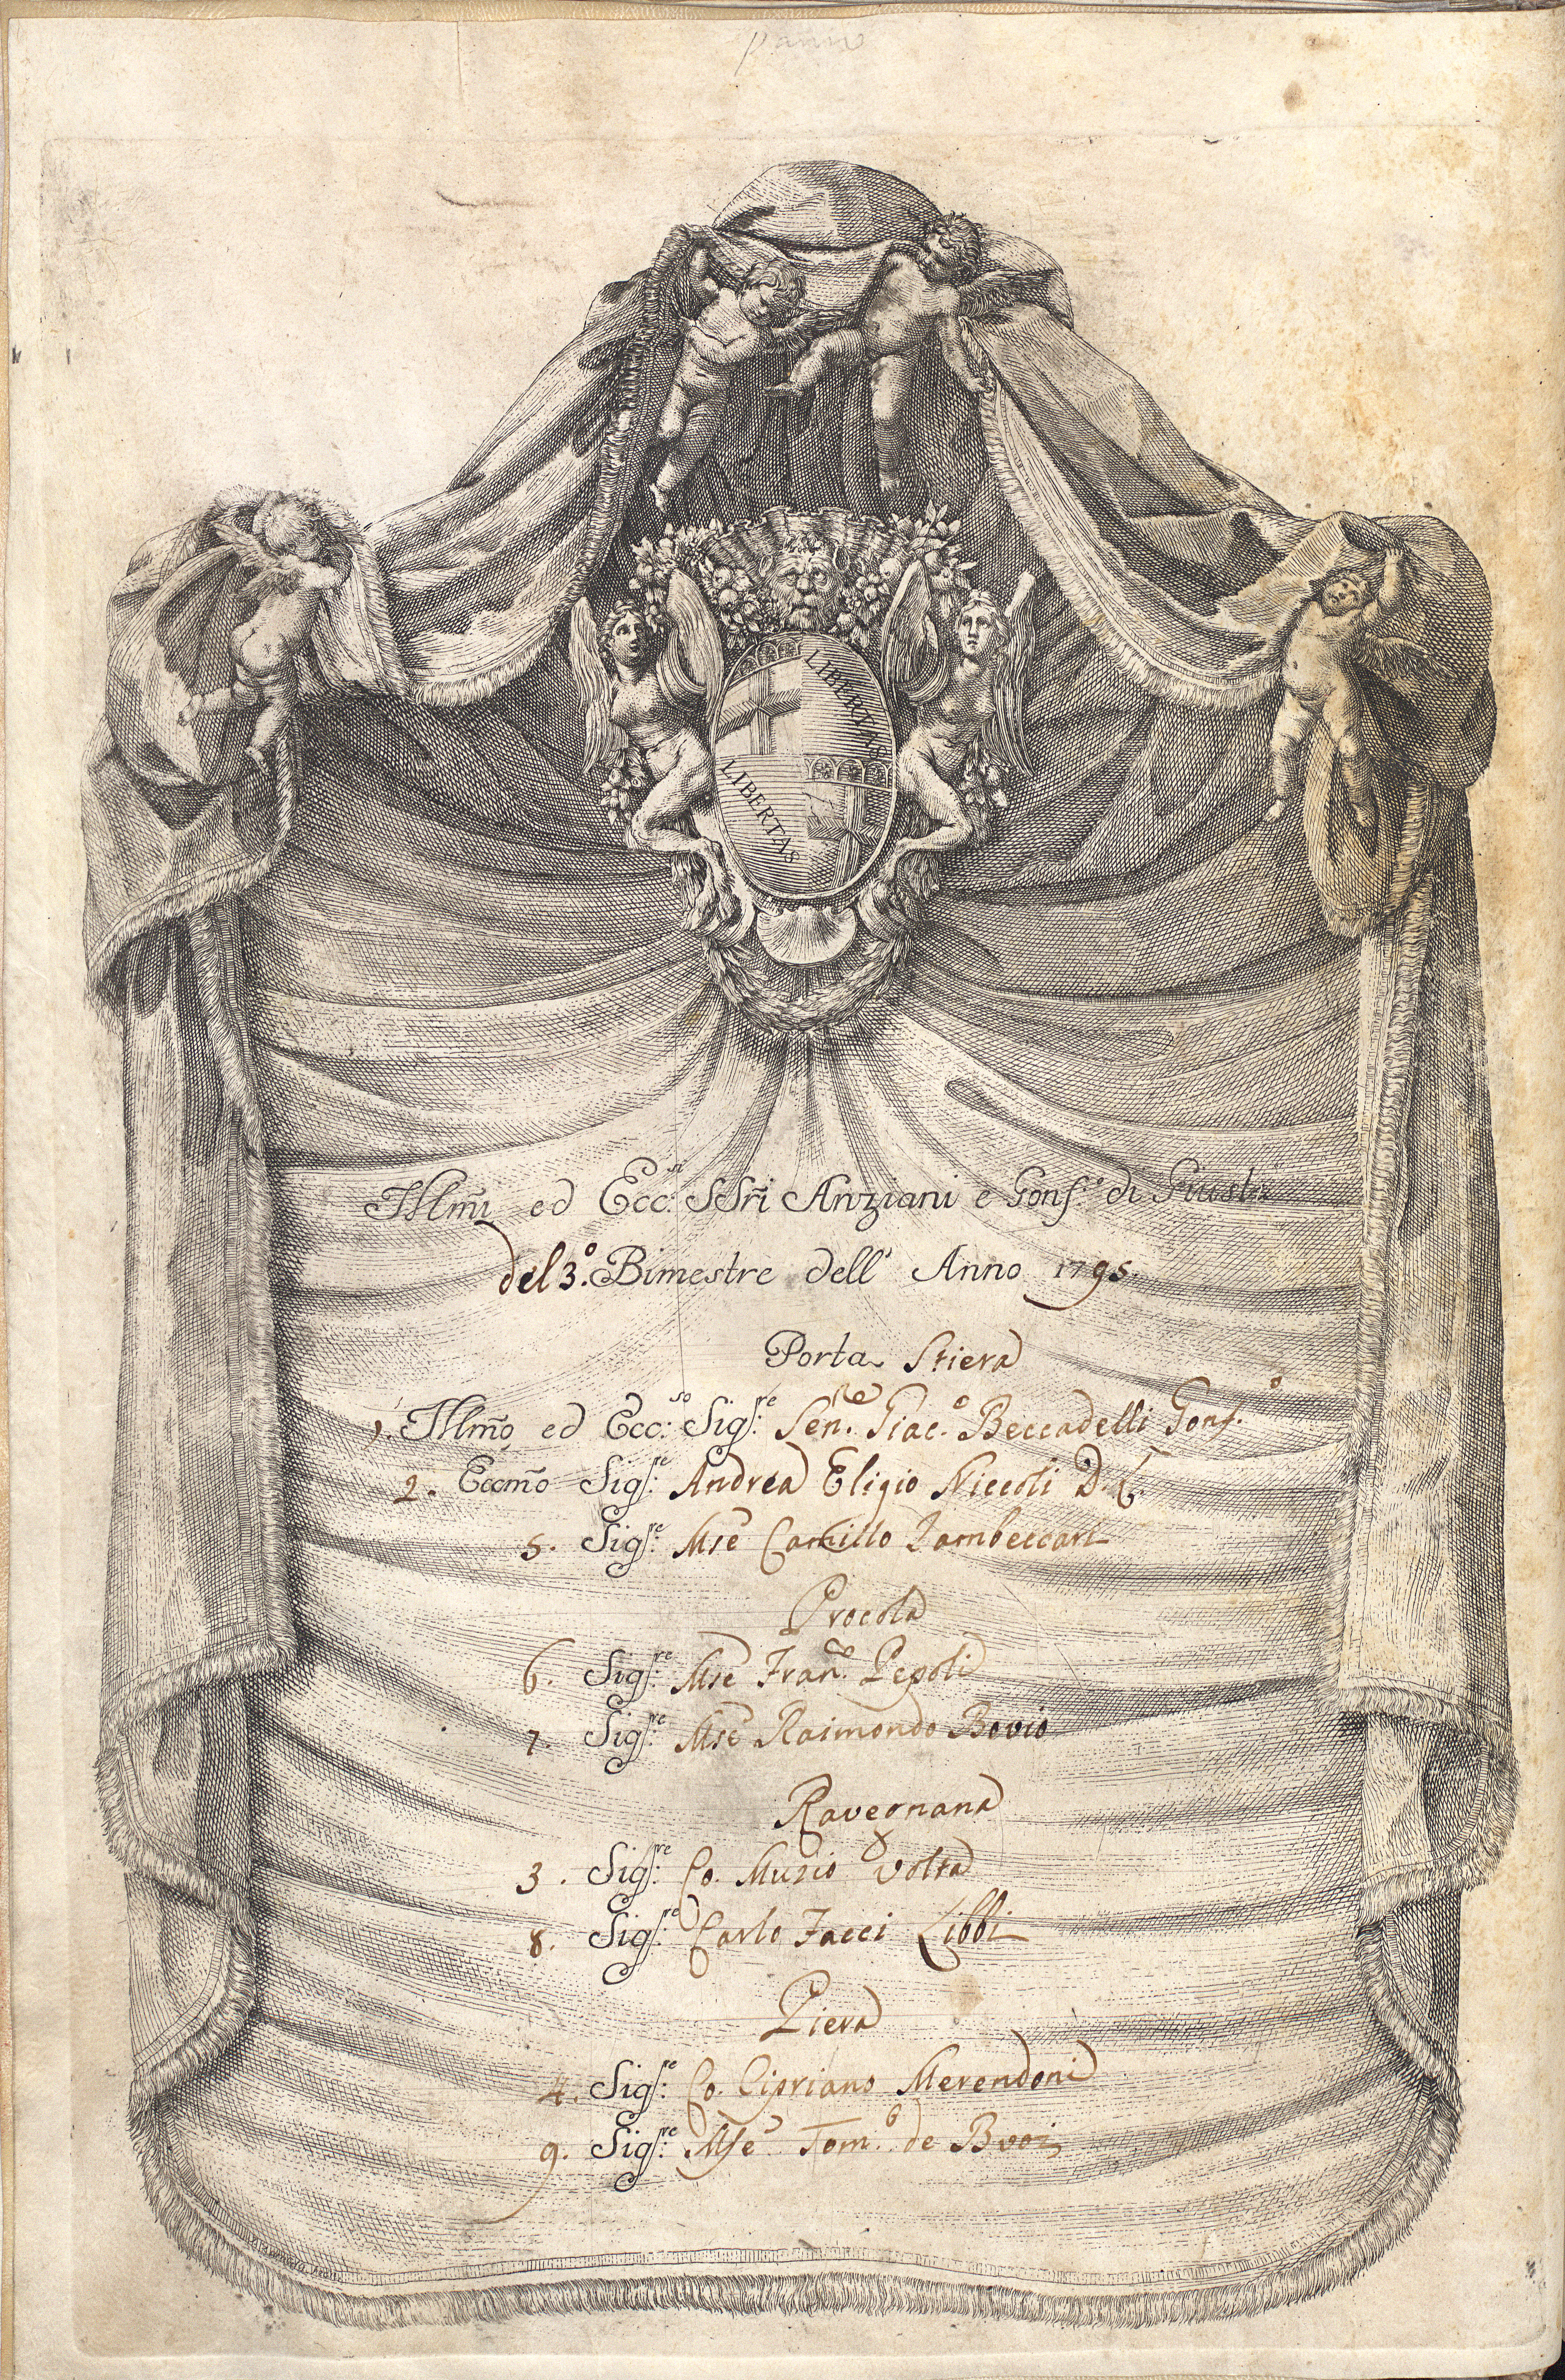 LIBERTAS
LIBERTAS
Illm̃i ed Ecc:si SSri Anziani e Gonf:e di Giustã
del 3.º Bimestre dell' Anno 1795.
Porta Stiera
1. Illm̃o ed Ecc:so Sig:re Sen.re Giac.º Beccadelli Gonf.º
2. Eccmõ Sig:re Andrea Eligio Niccoli D.L.
5. Sig:re Mse Camillo Zambeccari
Procola
6. Sig:re Mse Fran.co Pepoli
7. Sig:re Mse Raimondo Bovio
Ravegnana
3. Sig:re Co. Muzio Volta
8. Sig:re Carlo Facci Libbi
Piera
4. Sig:re Co. Cipriano Merendoni
9. Sig:re Mse Tom.º de Buoi